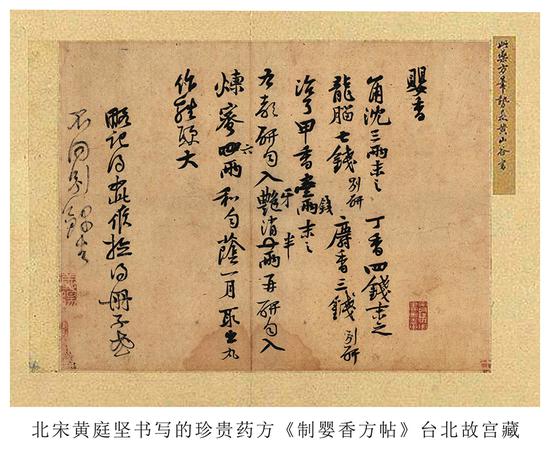 此藥方筆勢黃山谷書
嬰香
角沈三兩末之 丁香四錢末之
龍腦七錢別研 麝香三錢別研
治了甲香壹兩錢末之
右都研勻入艷消牙半兩再研勻入
煉蜜四六兩和勻蔭一月取出丸
作雞頭大
略記得此候撿得冊子或
不同別錄去
北宋黄庭坚书写的珍贵药方《制婴香方帖》台北故宫藏